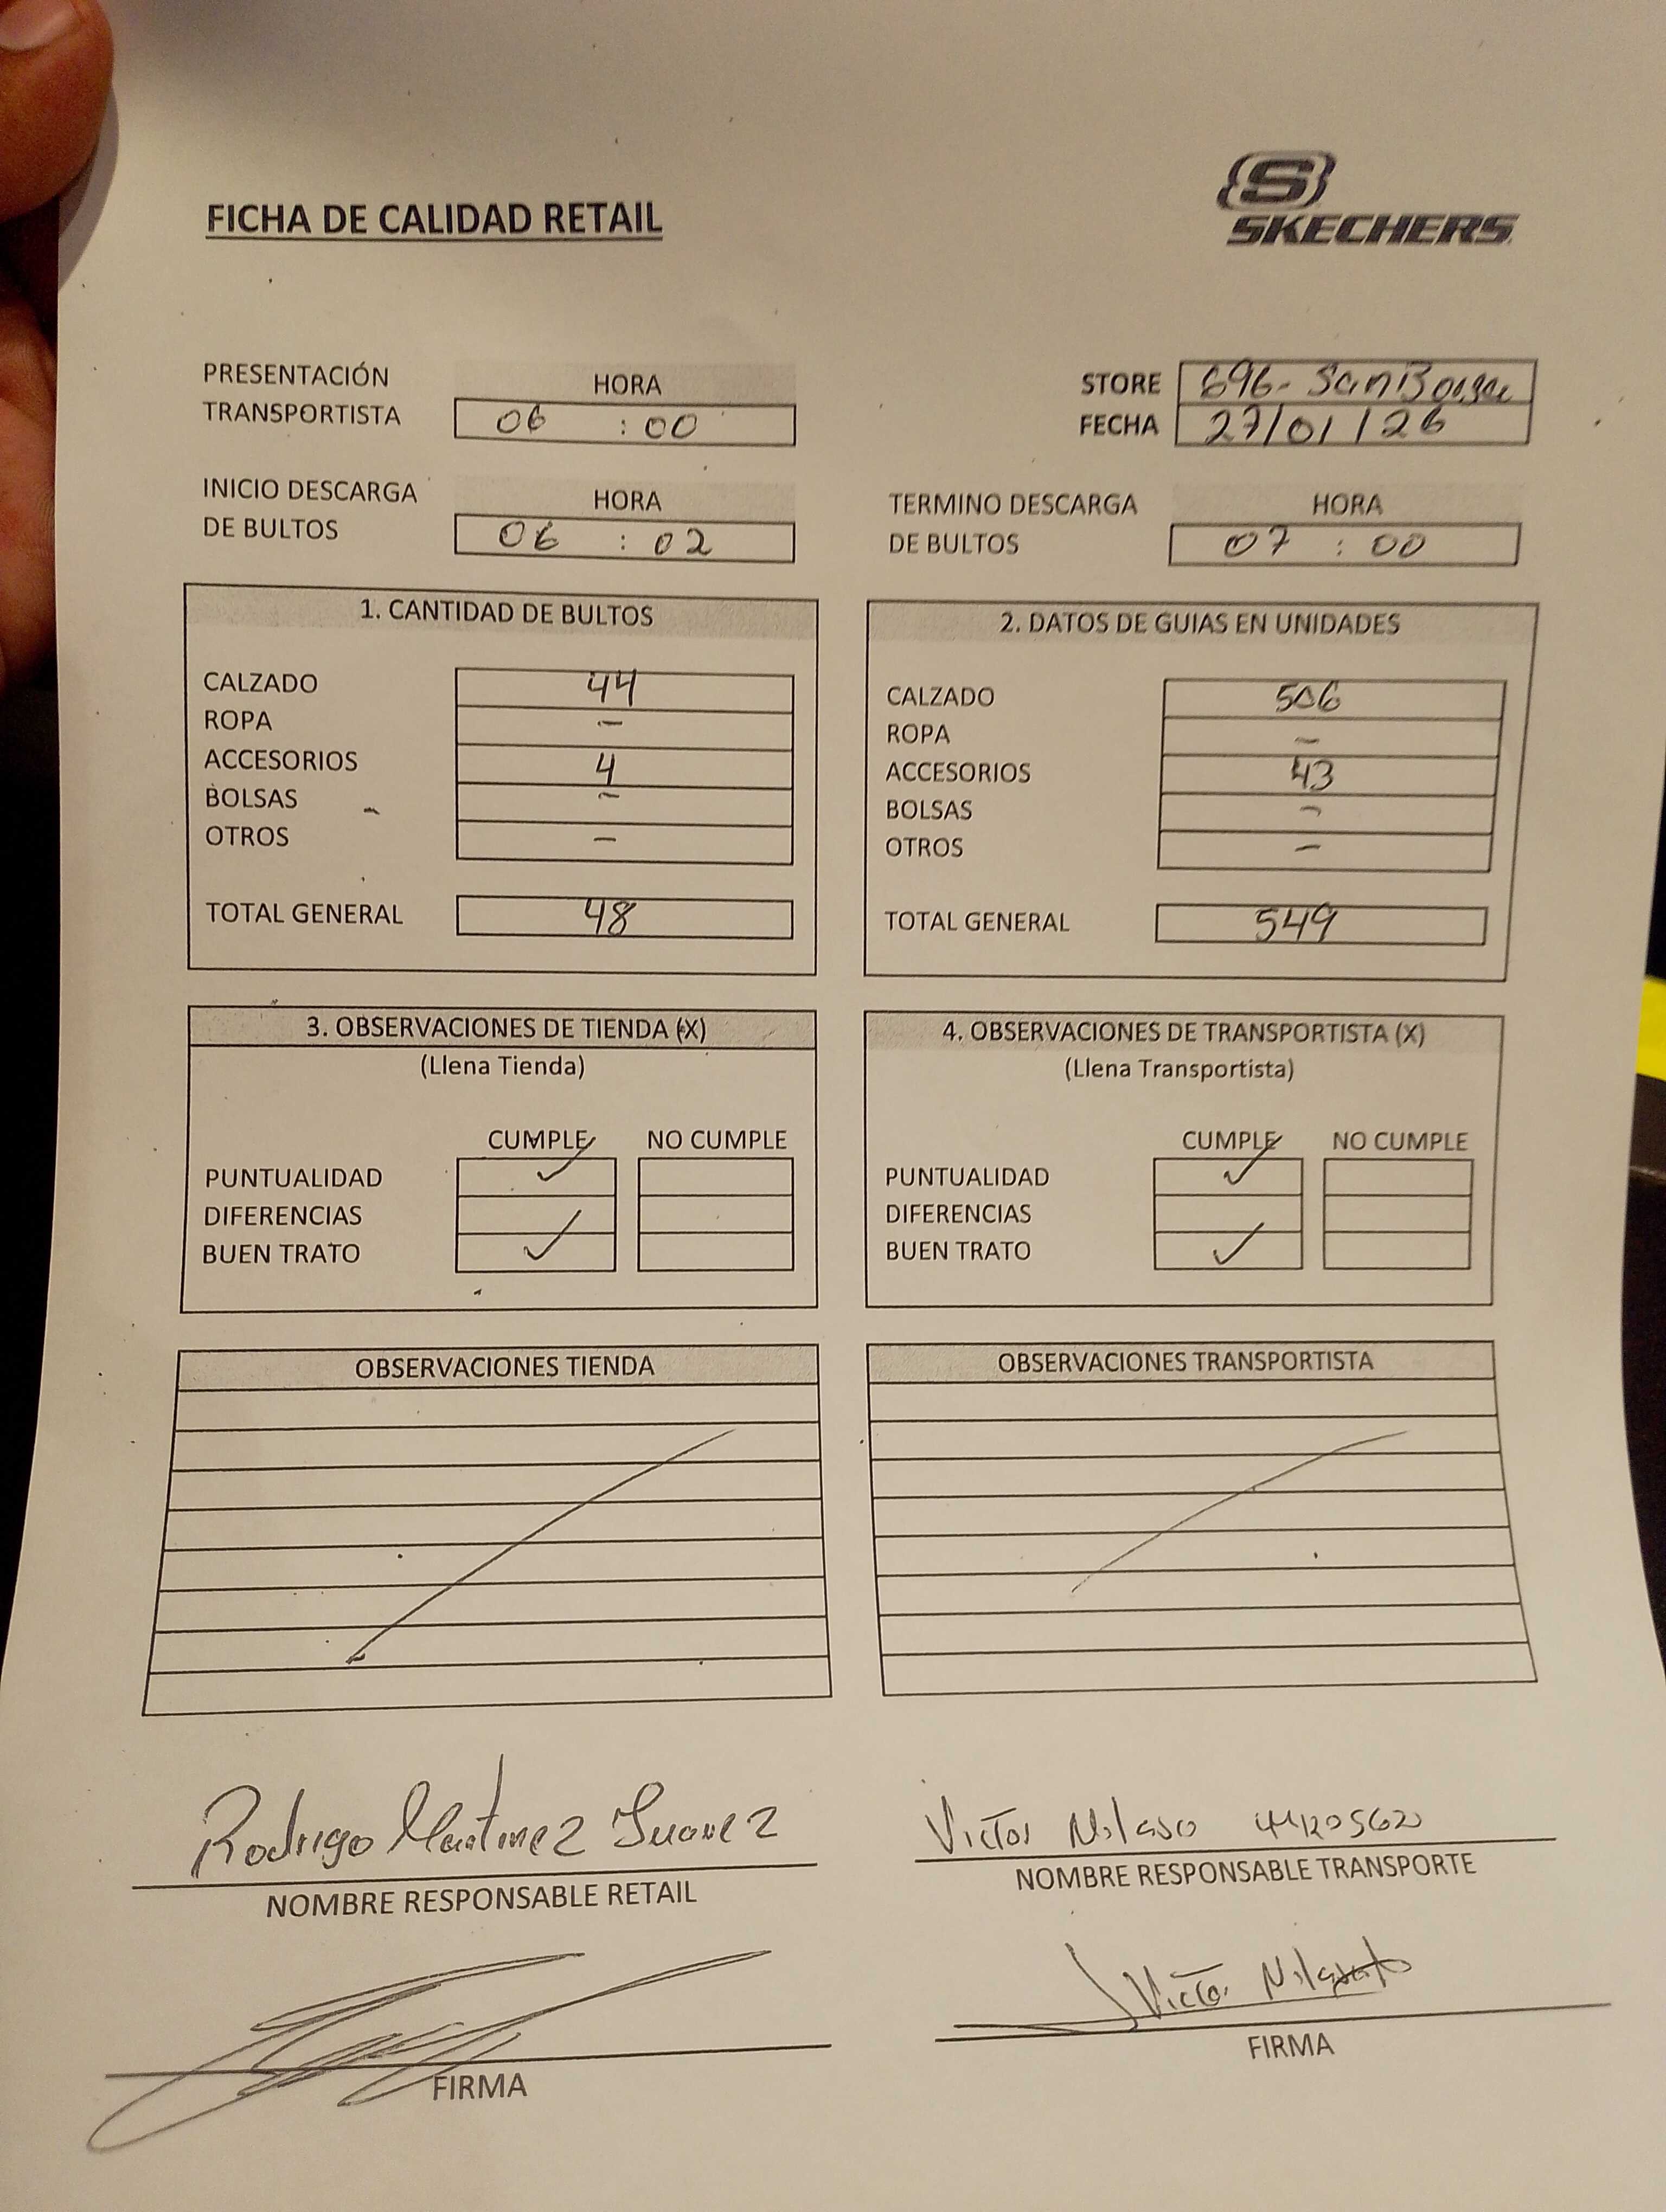 FICHA DE CALIDAD RETAIL
S
SKECHERS
PRESENTACIÓN TRANSPORTISTA
HORA
06 : 00
STORE 696- San Borja
FECHA 27/01/26
INICIO DESCARGA DE BULTOS
HORA
06 : 02
TERMINO DESCARGA DE BULTOS
HORA
07 : 00
1. CANTIDAD DE BULTOS
CALZADO 44
ROPA -
ACCESORIOS 4
BOLSAS -
OTROS -
TOTAL GENERAL 48
2. DATOS DE GUIAS EN UNIDADES
CALZADO 506
ROPA -
ACCESORIOS 43
BOLSAS -
OTROS -
TOTAL GENERAL 549
3. OBSERVACIONES DE TIENDA (X)
(Llena Tienda)
CUMPLE NO CUMPLE
PUNTUALIDAD ✓
DIFERENCIAS
BUEN TRATO ✓
4. OBSERVACIONES DE TRANSPORTISTA (X)
(Llena Transportista)
CUMPLE NO CUMPLE
PUNTUALIDAD ✓
DIFERENCIAS
BUEN TRATO ✓
OBSERVACIONES TIENDA
OBSERVACIONES TRANSPORTISTA
Rodrigo Martinez Suarez
NOMBRE RESPONSABLE RETAIL
FIRMA
Victor 44205620
NOMBRE RESPONSABLE TRANSPORTE
Victor
FIRMA